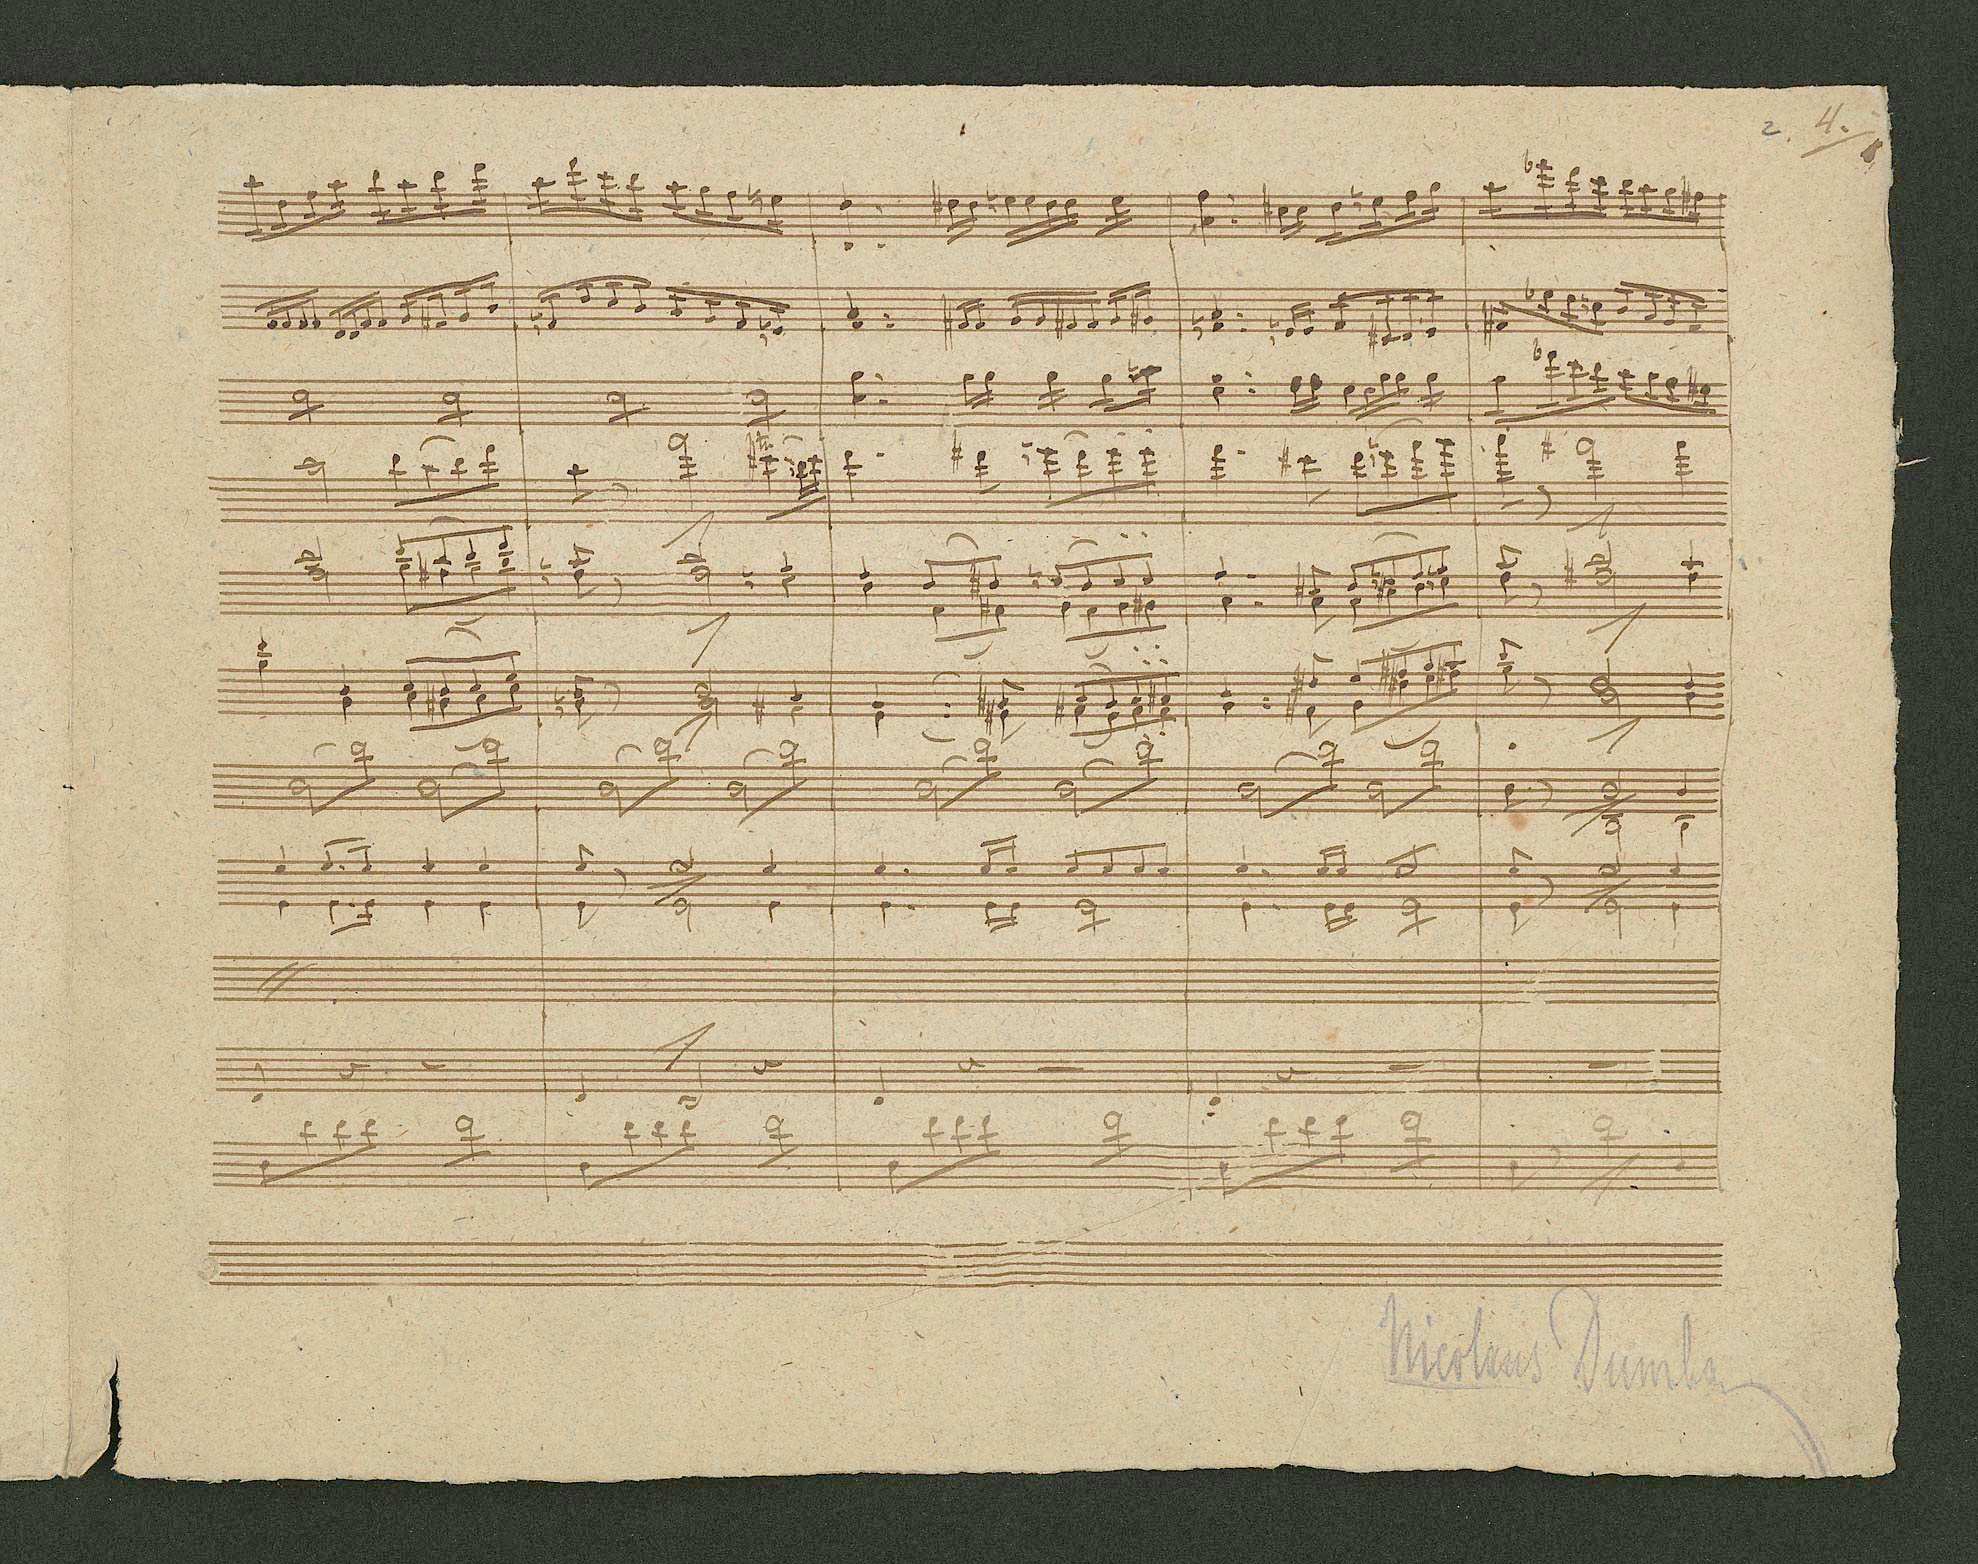 2. 4.
Nicolaus Dumba